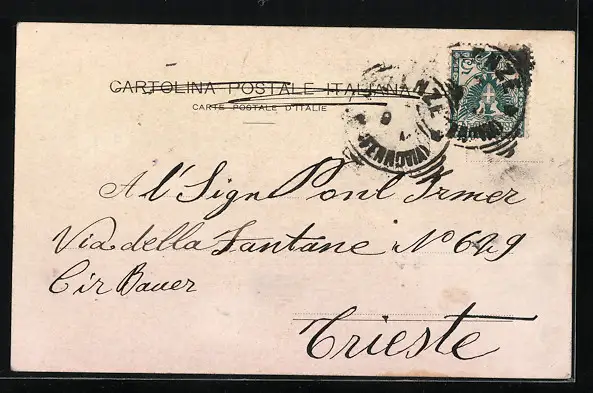 CARTOLINA POSTALE ITALIANA
CARTE POSTALE D'ITALIE
FIRENZE
FERROVIA
A l'Sign Poul Irmer
Via della Fantane No 629
Cir Bauer
Trieste